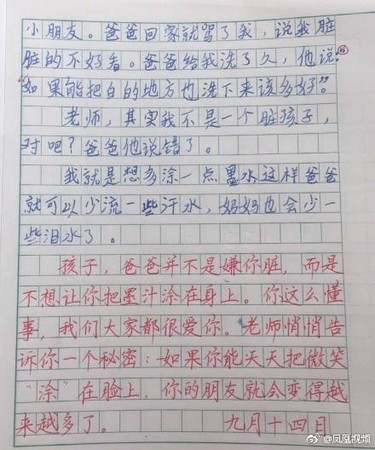 小朋友。爸爸回家就骂了我，说我脏
脏的不好看。爸爸给我洗了久，他说：
“如果能把白的地方也洗下来该多好”
老师，其实我不是一个脏孩子，
对吧？爸爸他说错了。
我就是想多涂一点墨水这样爸爸
就可以少流一些汗水，妈妈也会少一
些泪水了。
孩子，爸爸并不是嫌你脏，而是
不想让你把墨汁涂在身上。你这么懂
事，我们大家都很爱你。老师悄悄告
诉你一个秘密：如果你能天天把微笑
“涂”在脸上，你的朋友就会变得越
来越多了。 九月十四日
@凤凰视频